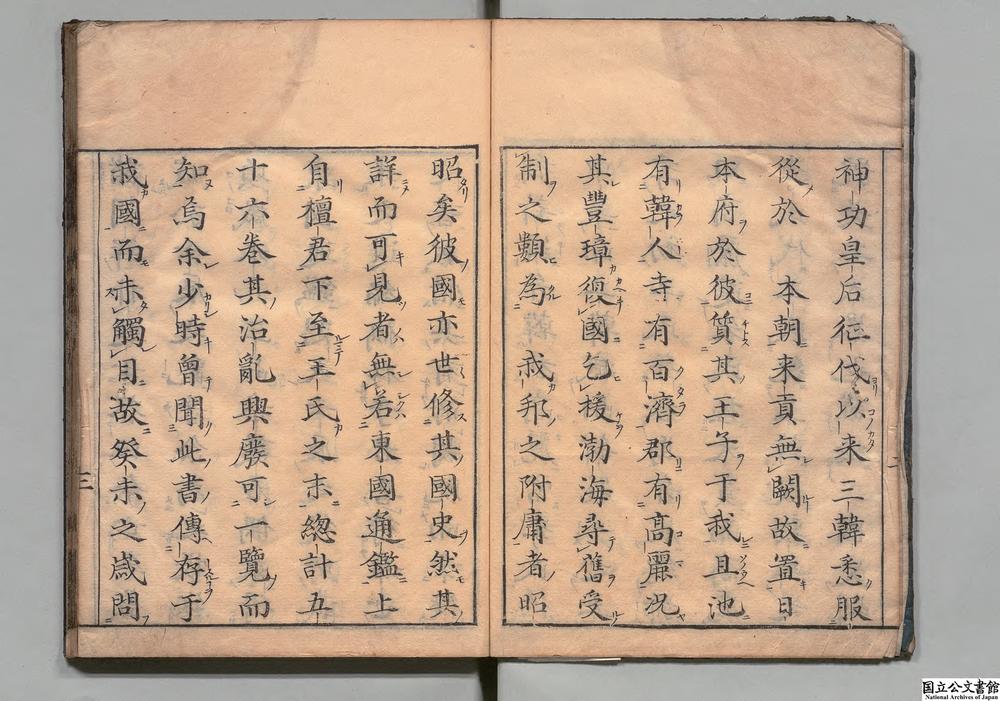 神功皇后征伐以来三韓悉服
從於　本朝来貢無闕故置日
本府於彼質其王子于我且池
有韓人寺有百濟郡有高麗况
其豐璋復國乞援渤海尋舊受
制之類為我邦之附庸者昭
昭矣彼國亦世修其國史然其
詳而可見者無若東國通鑑上
自檀君下至王氏之末總計五
十六卷其治亂興廢可一覽而
知焉余少時曾聞此書傳存于
我國而未觸目故癸未之歳問
三
国立公文書館
National Archives of Japan